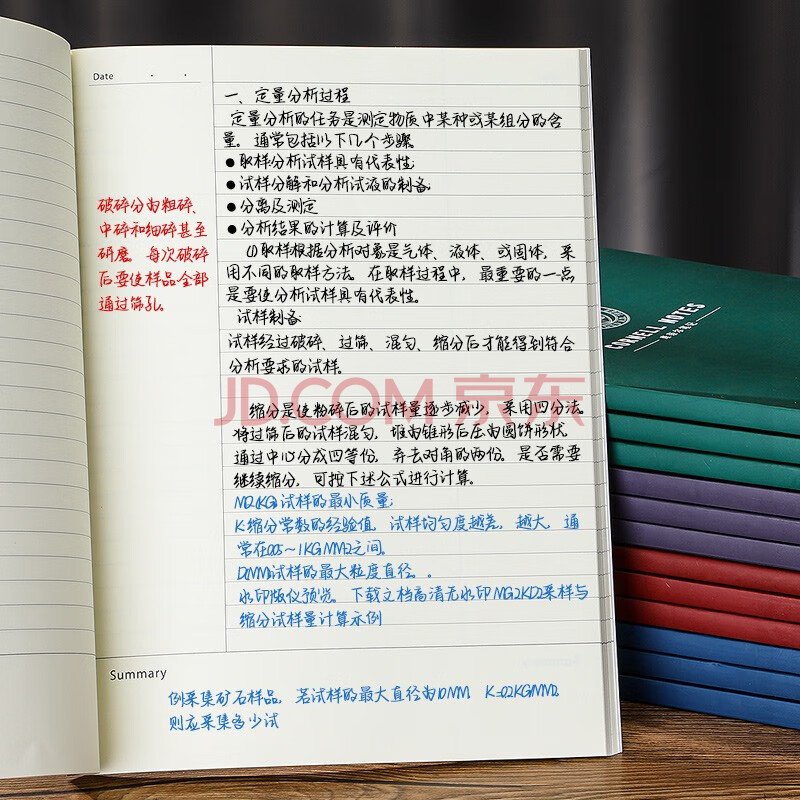 Date
一、定量分析过程
定量分析的任务是测定物质中某种或某组分的含
量。通常包括以下几个步骤
●取样分析试样具有代表性;
●试样分解和分析试液的制备
●分离及测定
●分析结果的计算及评价
(1)取样根据分析对象是气体、液体、或固体,采
用不同的取样方法。在取样过程中,最重要的一点
是要使分析试样具有代表性。
试样制备
试样经过破碎、过筛、混匀、缩分后才能得到符合
分析要求的试样。
缩分是使粉碎后的试样量逐步减少,采用四分法
将过筛后的试样混匀,堆由锥形后压由圆饼形状,
通过中心分成四等份,弃去对角的两份。是否需要
继续缩分,可按下述公式进行计算。
MQ(KG)试样的最小质量;
K缩分常数的经验值,试样均匀度越差,越大,通
常在0.05~1KG·MM2之间。
D(MM)试样的最大粒度直径。。
水印版仅预览。下载文档高清无水印MQ2KD2采样与
缩分试样量计算示例
破碎分为粗碎、
中碎和细碎甚至
研磨。每次破碎
后要使样品全部
通过筛孔。
Summary
例采集矿石样品,若试样的最大直径为10MM, K=0.2KG/MM2,
则应采集多少试
JD.COM 京东
CORNELL NOTES